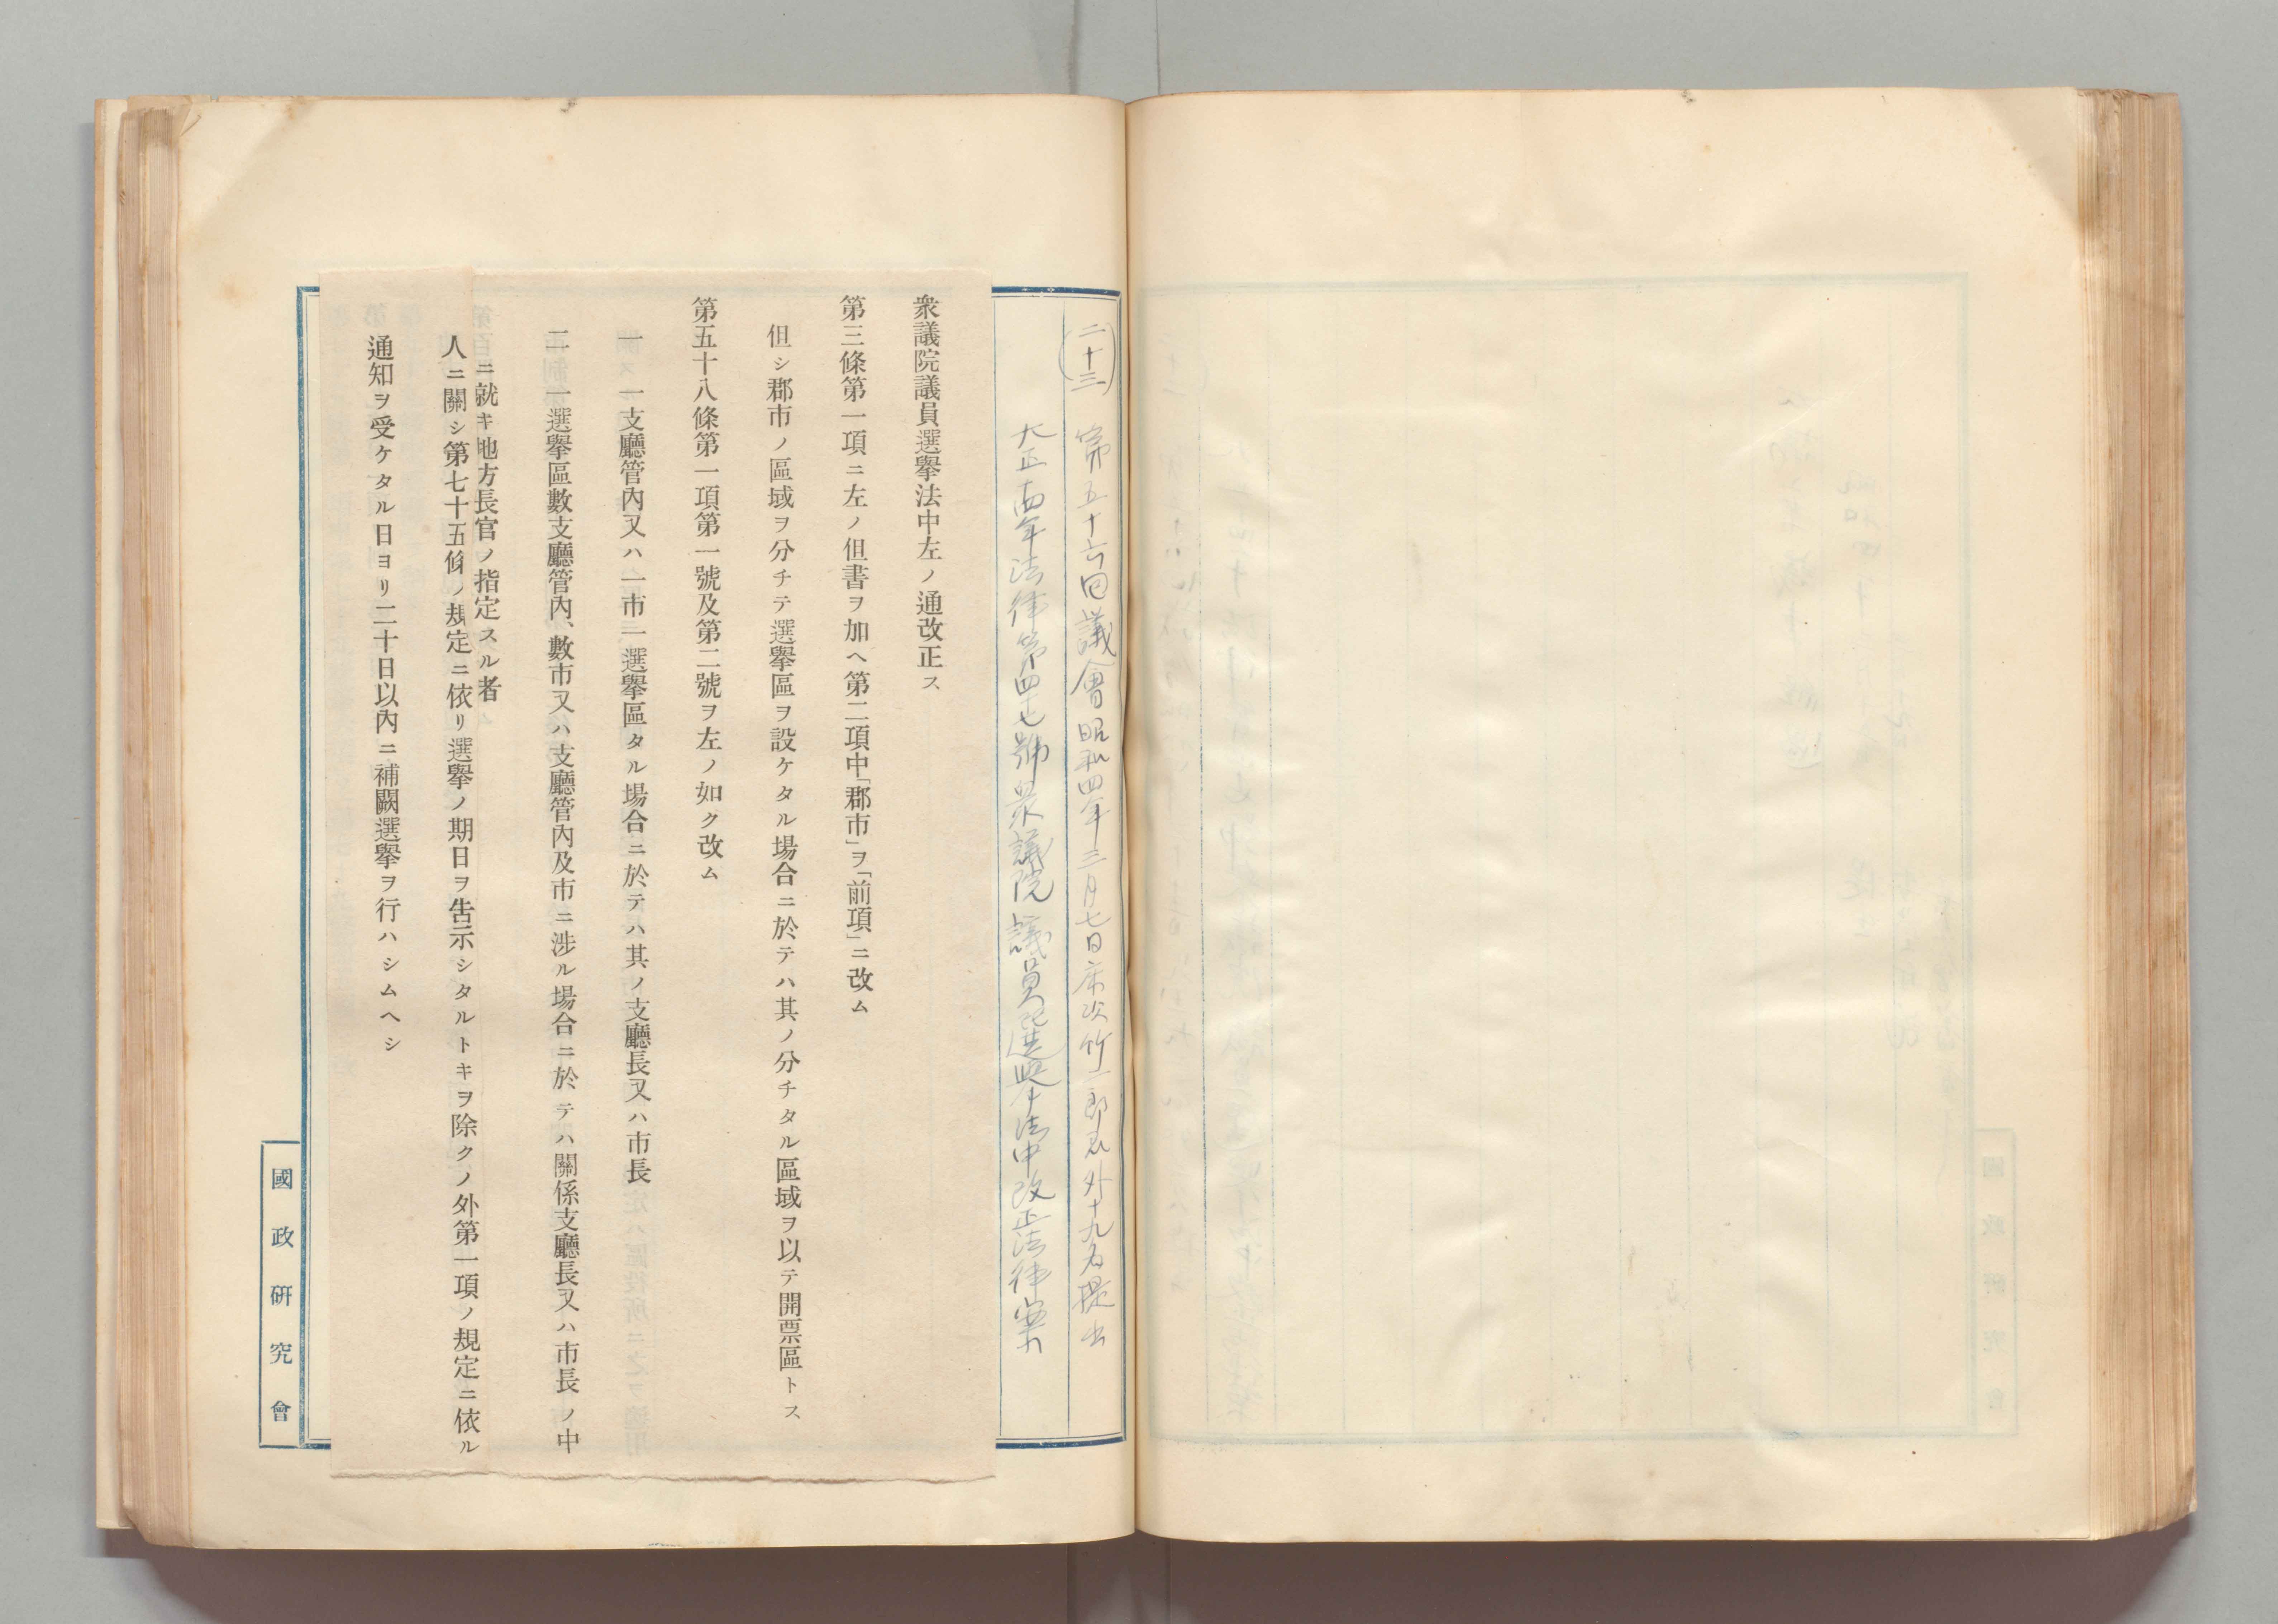 (二十三) 第五十六回議會昭和四年三月七日床次竹二郎君外十九名提出
大正十四年法律第四十七號衆議院議員選擧法中改正法律案
衆議院議員選擧法中左ノ通改正ス
第三條第一項ニ左ノ但書ヲ加ヘ第二項中「郡市」ヲ「前項」ニ改ム
但シ郡市ノ區域ヲ分チテ選擧區ヲ設ケタル場合ニ於テハ其ノ分チタル區域ヲ以テ開票區トス
第五十八條第一項第一號及第二號ヲ左ノ如ク改ム
一 一支廳管內又ハ一市一選擧區タル場合ニ於テハ其ノ支廳長又ハ市長
二 一選擧區數支廳管內、數市又ハ支廳管內及市ニ涉ル場合ニ於テハ關係支廳長又ハ市長ノ中
ニ就キ地方長官ノ指定スル者
人ニ關シ第七十五條ノ規定ニ依リ選擧ノ期日ヲ告示シタルトキヲ除クノ外第一項ノ規定ニ依ル
通知ヲ受ケタル日ヨリ二十日以內ニ補闕選擧ヲ行ハシムヘシ
國政硏究會